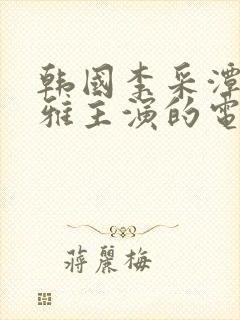 韩國李采潭
雅主演的電
蔣麗梅